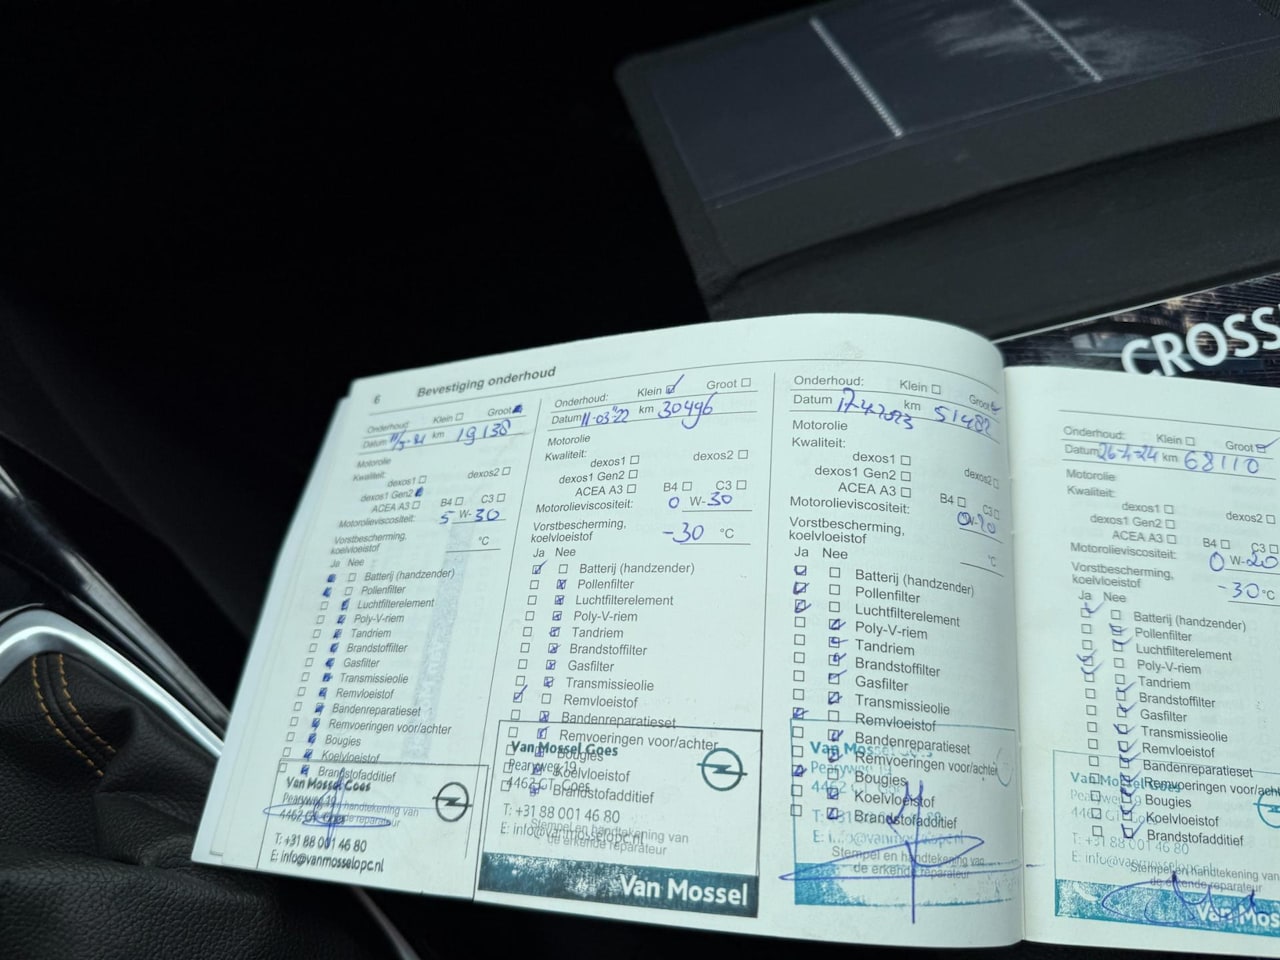 6 Bevestiging onderhoud
Onderhoud: Klein Groot
Datum 11/5-21 km 19138
Motorolie
Kwaliteit:
dexos1 dexos2
dexos1 Gen2
ACEA A3 B4 C3
Motorolieviscositeit: 5 W-30
Vorstbescherming,
koelvloeistof °C
Ja Nee
Batterij (handzender)
Pollenfilter
Luchtfilterelement
Poly-V-riem
Tandriem
Brandstoffilter
Gasfilter
Transmissieolie
Remvloeistof
Bandenreparatieset
Remvoeringen voor/achter
Bougies
Koelvloeistof
Brandstofadditief
Van Mossel Goes
Pearyweg 19
4462 GT Goes
T: +31 88 001 46 80
E: info@vanmosselopc.nl
Onderhoud: Klein Groot
Datum 11-03-'22 km 30496
Motorolie
Kwaliteit:
dexos1 dexos2
dexos1 Gen2
ACEA A3 B4 C3
Motorolieviscositeit: 0 W-30
Vorstbescherming,
koelvloeistof -30 °C
Ja Nee
Batterij (handzender)
Pollenfilter
Luchtfilterelement
Poly-V-riem
Tandriem
Brandstoffilter
Gasfilter
Transmissieolie
Remvloeistof
Bandenreparatieset
Remvoeringen voor/achter
Bougies
Koelvloeistof
Brandstofadditief
Van Mossel Goes
Pearyweg 19
4462 GT Goes
T: +31 88 001 46 80
E: info@vanmosselopc.nl
Stempel en handtekening van
de erkende reparateur
Van Mossel
Onderhoud: Klein Groot
Datum 17-4-2023 km 51482
Motorolie
Kwaliteit:
dexos1 dexos2
dexos1 Gen2
ACEA A3 B4 C3
Motorolieviscositeit: 0W-20
Vorstbescherming,
koelvloeistof °C
Ja Nee
Batterij (handzender)
Pollenfilter
Luchtfilterelement
Poly-V-riem
Tandriem
Brandstoffilter
Gasfilter
Transmissieolie
Remvloeistof
Bandenreparatieset
Remvoeringen voor/achter
Bougies
Koelvloeistof
Brandstofadditief
Stempel en handtekening van
de erkende reparateur
Onderhoud: Klein Groot
Datum 26-4-24 km 68110
Motorolie
Kwaliteit:
dexos1 dexos2
dexos1 Gen2
ACEA A3 B4 C3
Motorolieviscositeit: 0 W-20
Vorstbescherming,
koelvloeistof -30 °C
Ja Nee
Batterij (handzender)
Pollenfilter
Luchtfilterelement
Poly-V-riem
Tandriem
Brandstoffilter
Gasfilter
Transmissieolie
Remvloeistof
Bandenreparatieset
Remvoeringen voor/acht
Bougies
Koelvloeistof
Brandstofadditief
Van Mossel Goes
T: +31 88 001 46 80
E: info@vanmosselopc.nl
Stempel en handtekening van
de erkende reparateur
Van Mos
CROSS